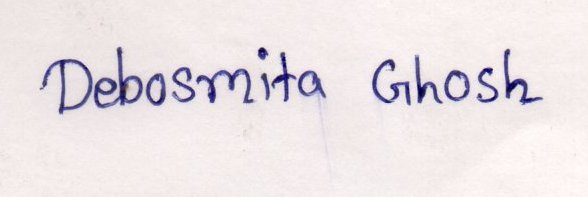 Debosmita Ghosh